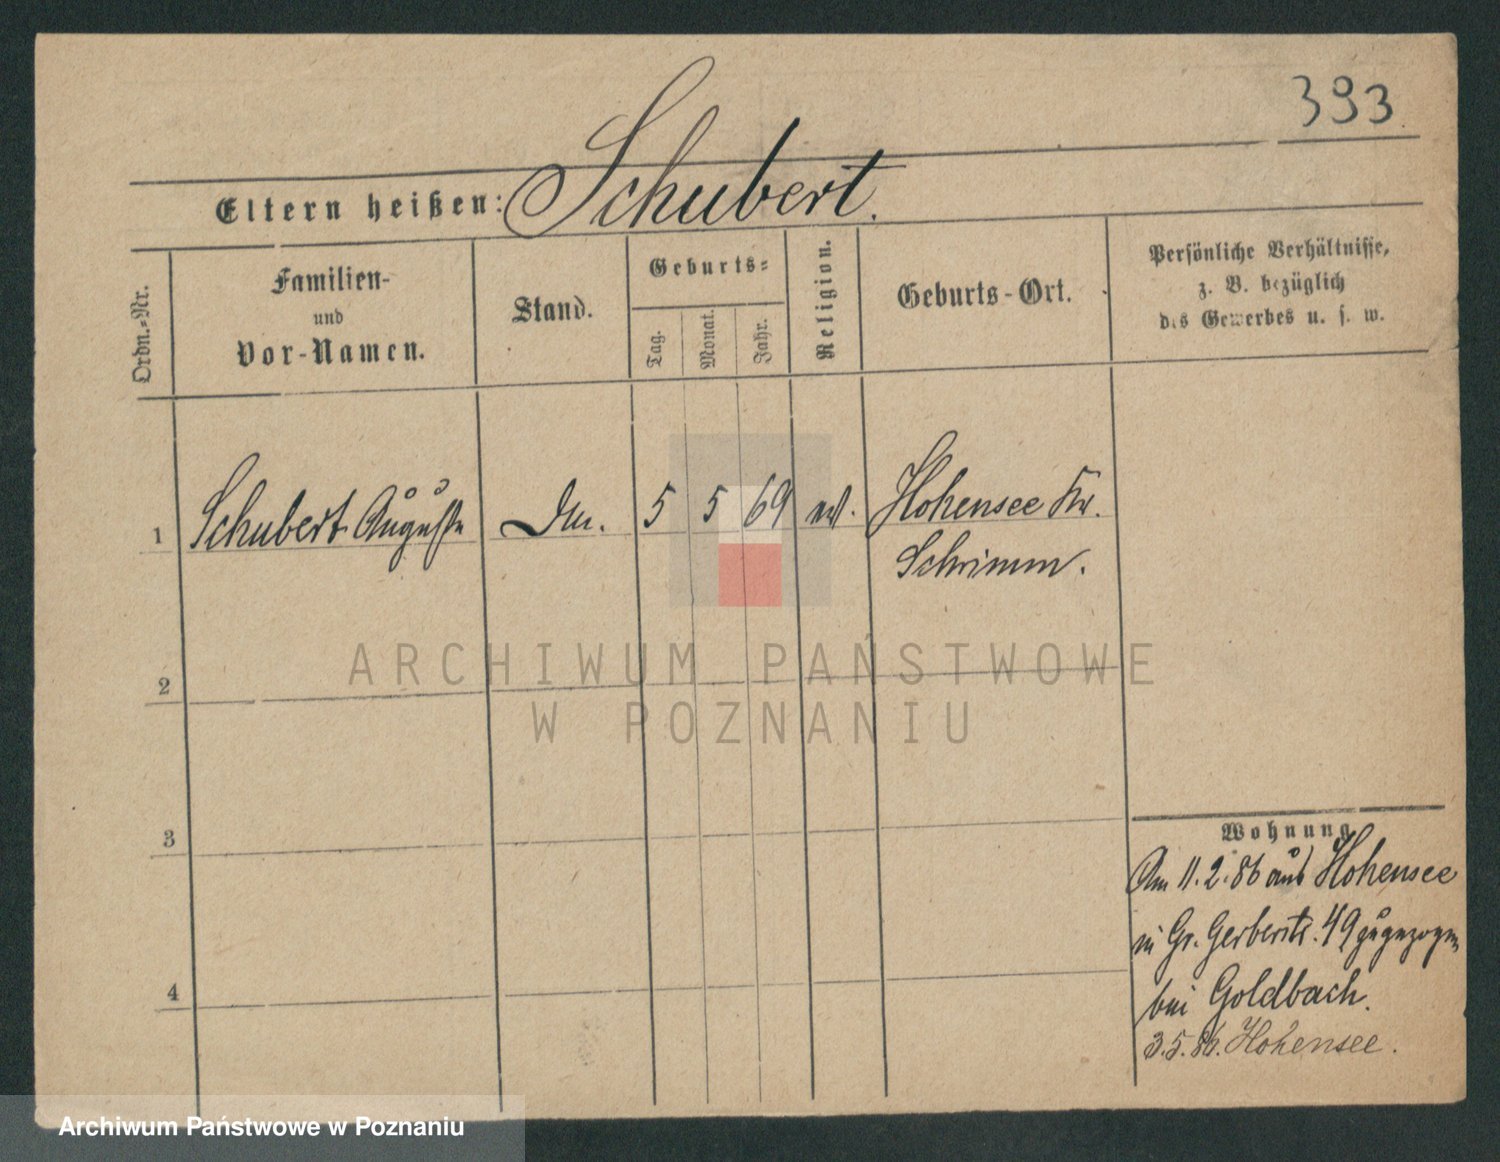 393
Eltern heißen: Schubert.
Ordn.-Nr.
Familien-
und
Vor-Namen.
Stand.
Geburts-
Tag.
Monat.
Jahr.
Religion.
Geburts-Ort.
Persönliche Verhältnisse,
z. B. bezüglich
des Gewerbes u. s. w.
1 Schubert Auguste
5 5 69
Hohensee Kr.
Schrimm.
2
3
4
Wohnung
Am 11.2.86 aus Hohensee
in Gr. Gerberstr. 49 zugezogen
bei Goldbach.
3.5.86. Hohensee.
ARCHIWUM PAŃSTWOWE
W POZNANIU
Archiwum Państwowe w Poznaniu